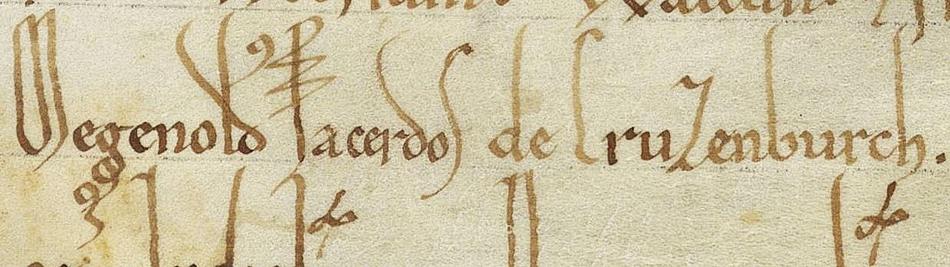 Megenold sacerdos de Cruzenburch.